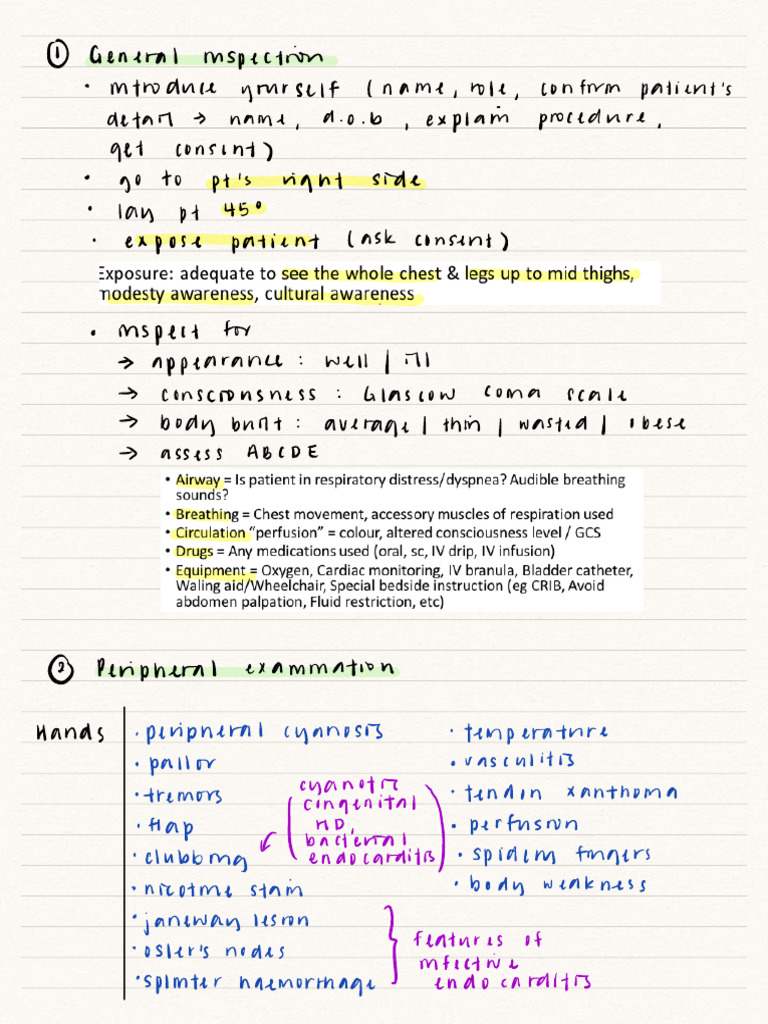 ① General inspection
• introduce yourself (name, role, confirm patient's
detail → name, d.o.b, explain procedure,
get consent)
• go to pt's right side
• lay pt 45°
• expose patient (ask consent)
Exposure: adequate to see the whole chest & legs up to mid thighs,
modesty awareness, cultural awareness
• inspect for
→ appearance : well | ill
→ consciousness : Glascow coma scale
→ body built : average | thin | wasted | obese
→ assess ABCDE
• Airway = Is patient in respiratory distress/dyspnea? Audible breathing
sounds?
• Breathing = Chest movement, accessory muscles of respiration used
• Circulation "perfusion" = colour, altered consciousness level / GCS
• Drugs = Any medications used (oral, sc, IV drip, IV infusion)
• Equipment = Oxygen, Cardiac monitoring, IV branula, Bladder catheter,
Waling aid/Wheelchair, Special bedside instruction (eg CRIB, Avoid
abdomen palpation, Fluid restriction, etc)
② Peripheral examination
Hands
• peripheral cyanosis
• pallor
• tremors
• flap
• clubbing
← (cyanotic
congenital
HD,
bacterial
endocarditis)
• nicotine stain
• janeway lesion
• osler's nodes
• splinter haemorrhage
} features of
infective
endocarditis
• temperature
• vasculitis
• tendon xanthoma
• perfusion
• spidery fingers
• body weakness